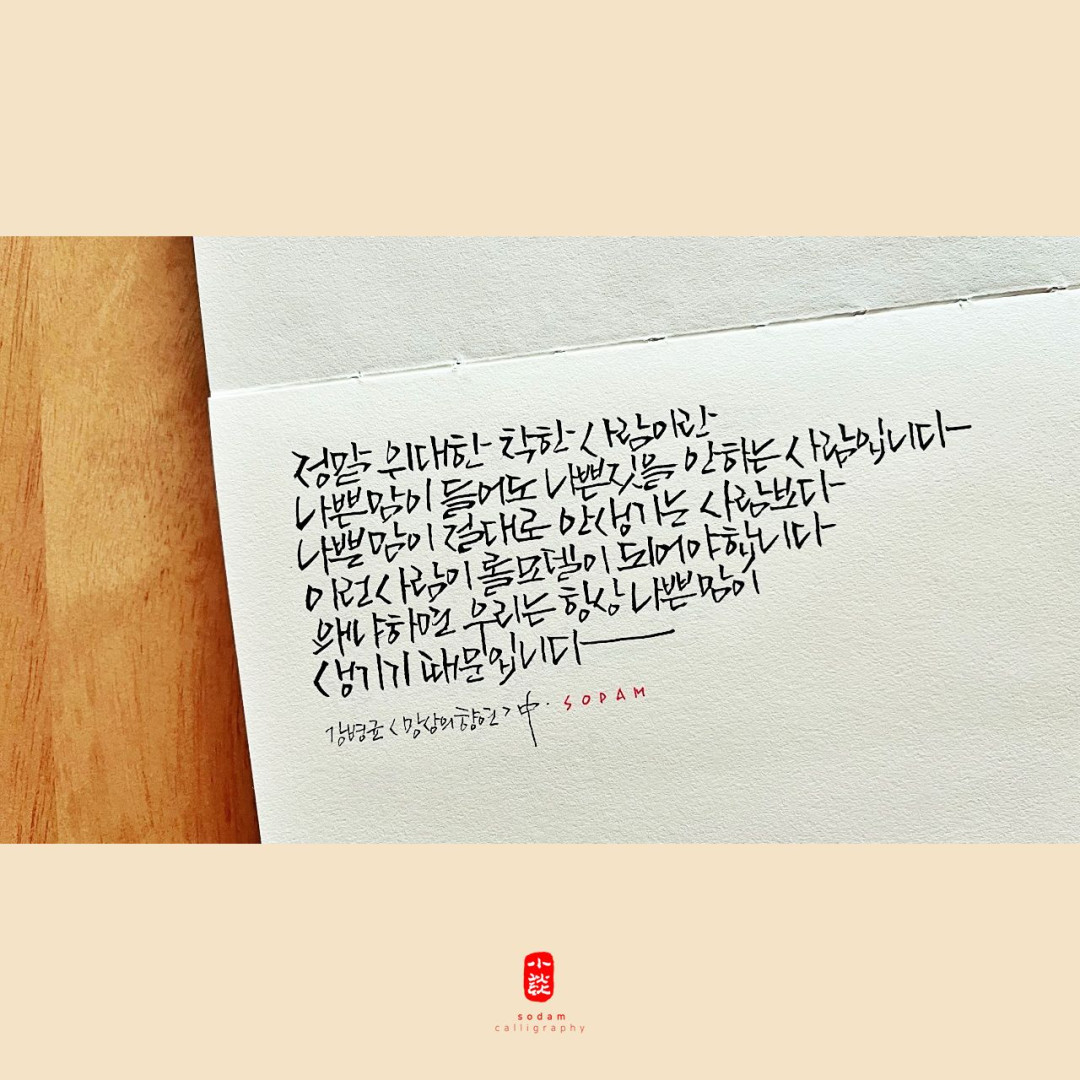 정말 위대한 착한 사람이란
나쁜맘이 들어도 나쁜짓을 안하는 사람입니다
나쁜맘이 절대로 안생기는 사람보다
이런사람이 롤모델이 되어야합니다
왜냐하면 우리는 항상 나쁜맘이
생기기 때문입니다
강병균 <망상의향연> 中. SODAM
小談
sodam
calligraphy